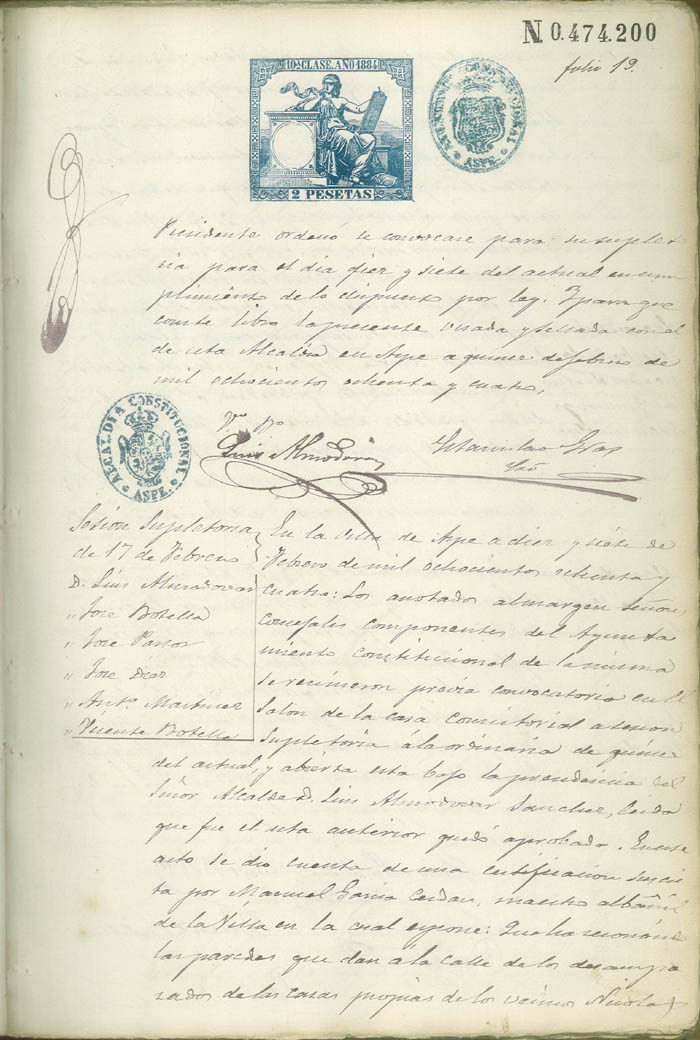 N. 0.474.200
folio 19.
10ª CLASE. AÑO 1884
2 PESETAS
AYUNTAMIENTO CONSTITUCIONAL
ASPE
Presidente ordenó se convocase para su supleto
ria para el dia diez y siete del actual en cum
plimiento de lo dispuesto por ley. Y para que
conste libro la presente visada y sellada con el
de esta Alcaldia en Aspe a quince de febrero de
mil ochocientos ochenta y cuatro,
ALCALDIA CONSTITUCIONAL
ASPE.
Vº Bº
Luis Almodovar
Estanislao Gras
Srio
Sesion Supletoria
de 17 de Febrero
D. Luis Almodovar
" Jose Botella
" Jose Pastor
" Jose Diez
" Antº Martinez
" Vicente Botella
En la Villa de Aspe a diez y siete de
Febrero de mil ochocientos ochenta y
cuatro: Los anotados al margen señores
concejales componentes del Ayunta
miento Constitucional de la misma
se reunieron previa convocatoria en el
Salon de la casa Consistorial a sesion
Supletoria á la ordinaria de quince
del actual, y abierta esta bajo la presidencia del
Señor Alcalde D. Luis Almodovar Sanchez, leida
que fue el acta anterior quedó aprobada. En este
acto se dio cuenta de una certificacion suscri
ta por Manuel Garcia Cerdan, maestro albañil
de la Villa en la cual expone: Que ha reconocido
las paredes que dan a la calle de los desampa
rados de las casas propias de los vecinos Nicolas